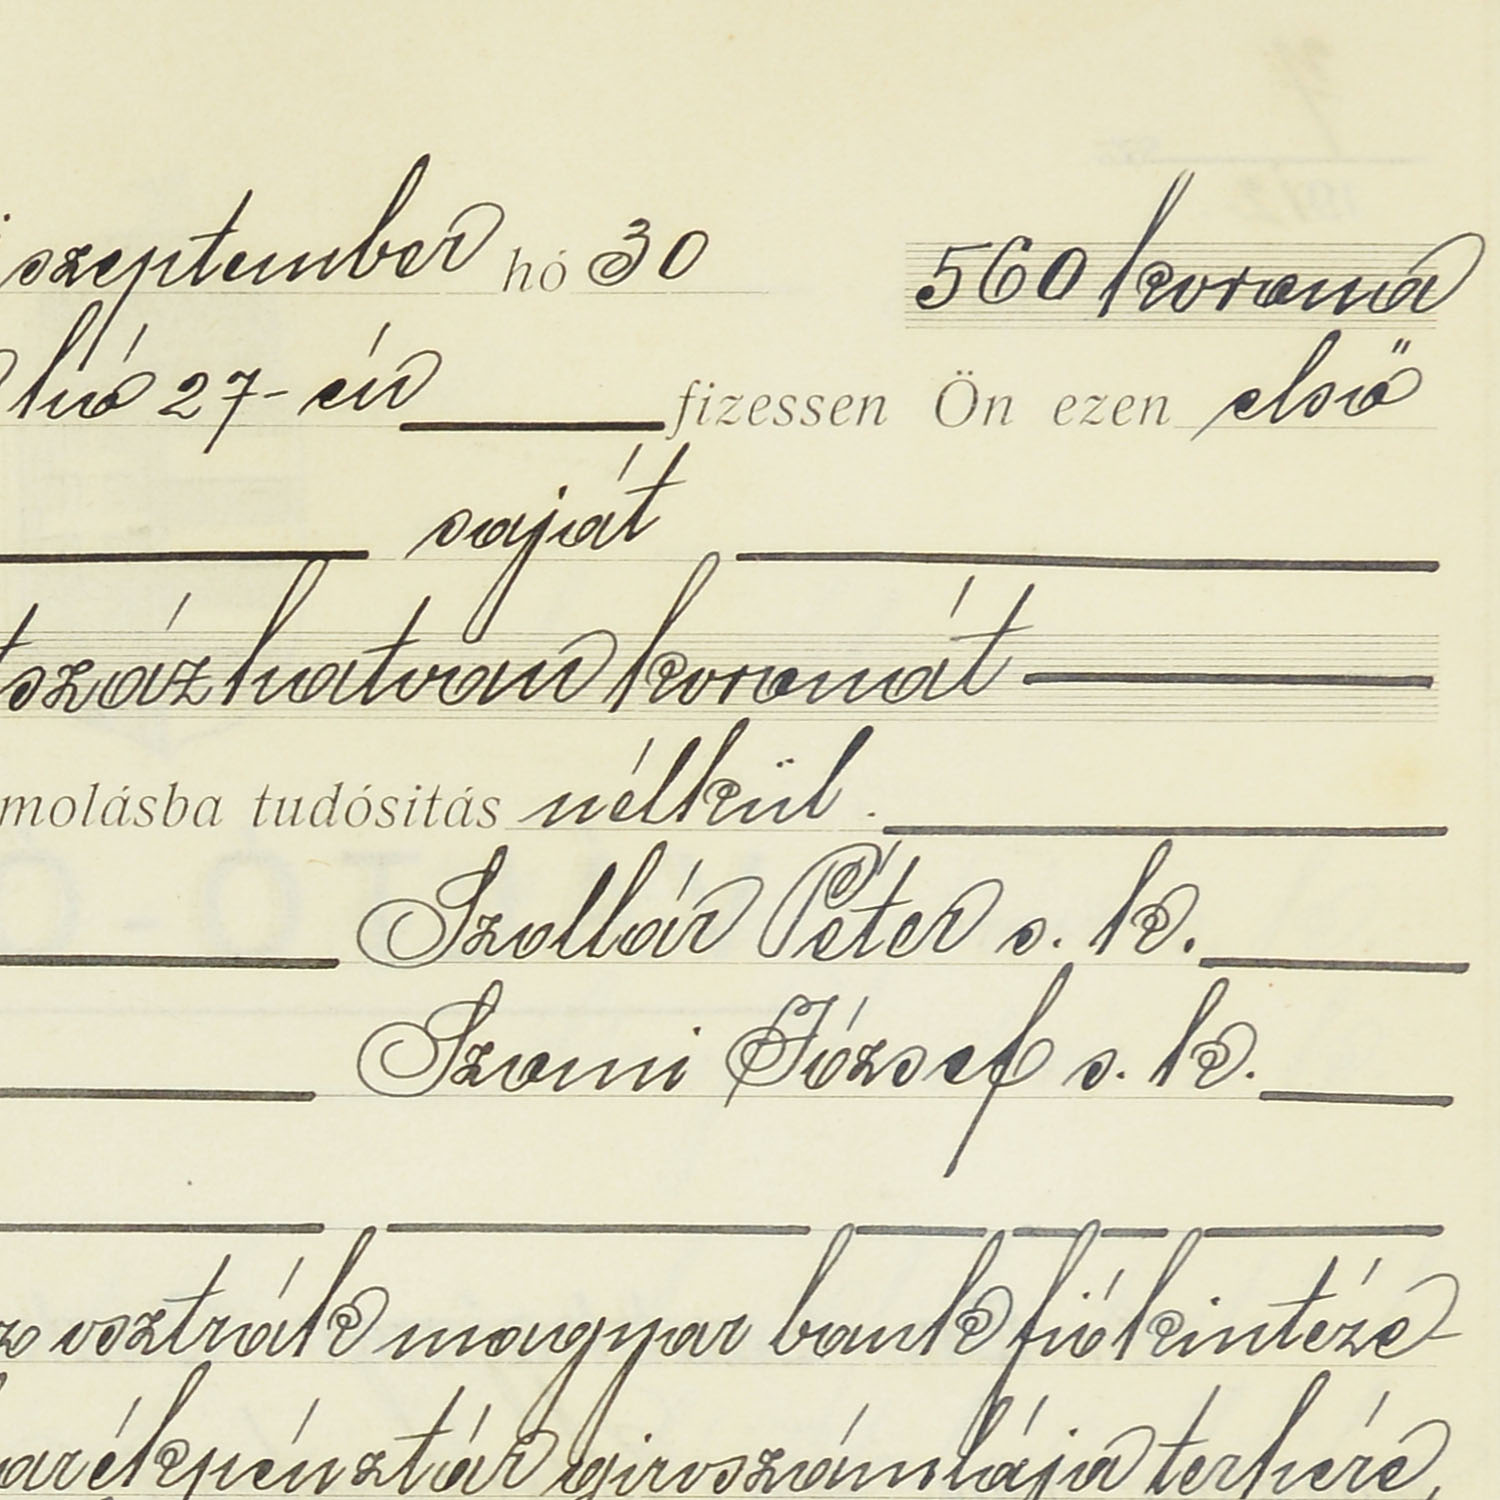 szeptember hó 30 560 korona
hó 27-én fizessen Ön ezen első
saját
tszázhatvan koronát
molásba tudósitás nélkül.
Szollár Péter s. k.
Szomi József s. k.
z osztrák magyar bank fiókintéze-
arékpénztár giroszámlája terhére,